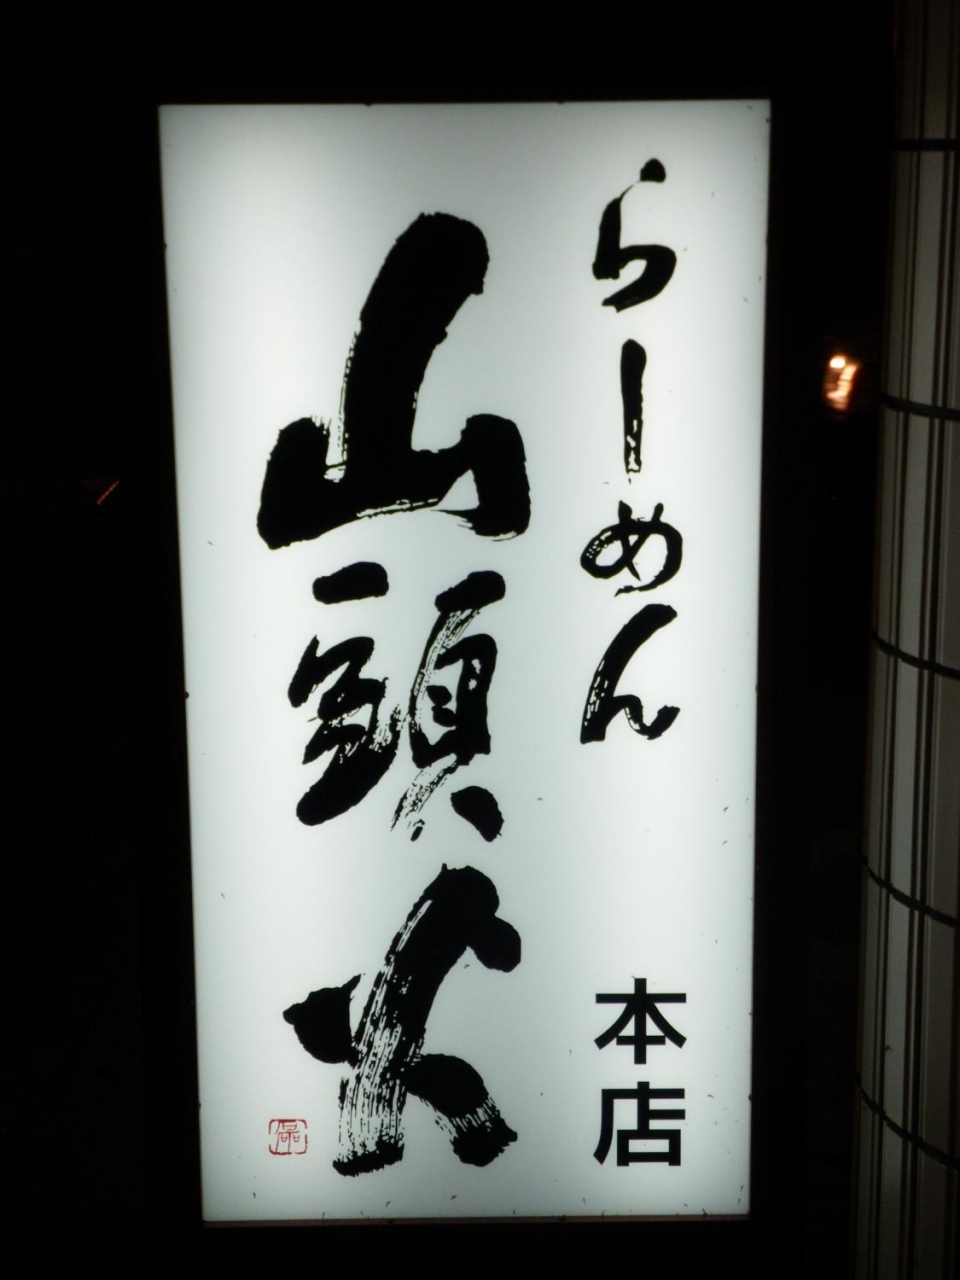 らーめん
山頭火
本店